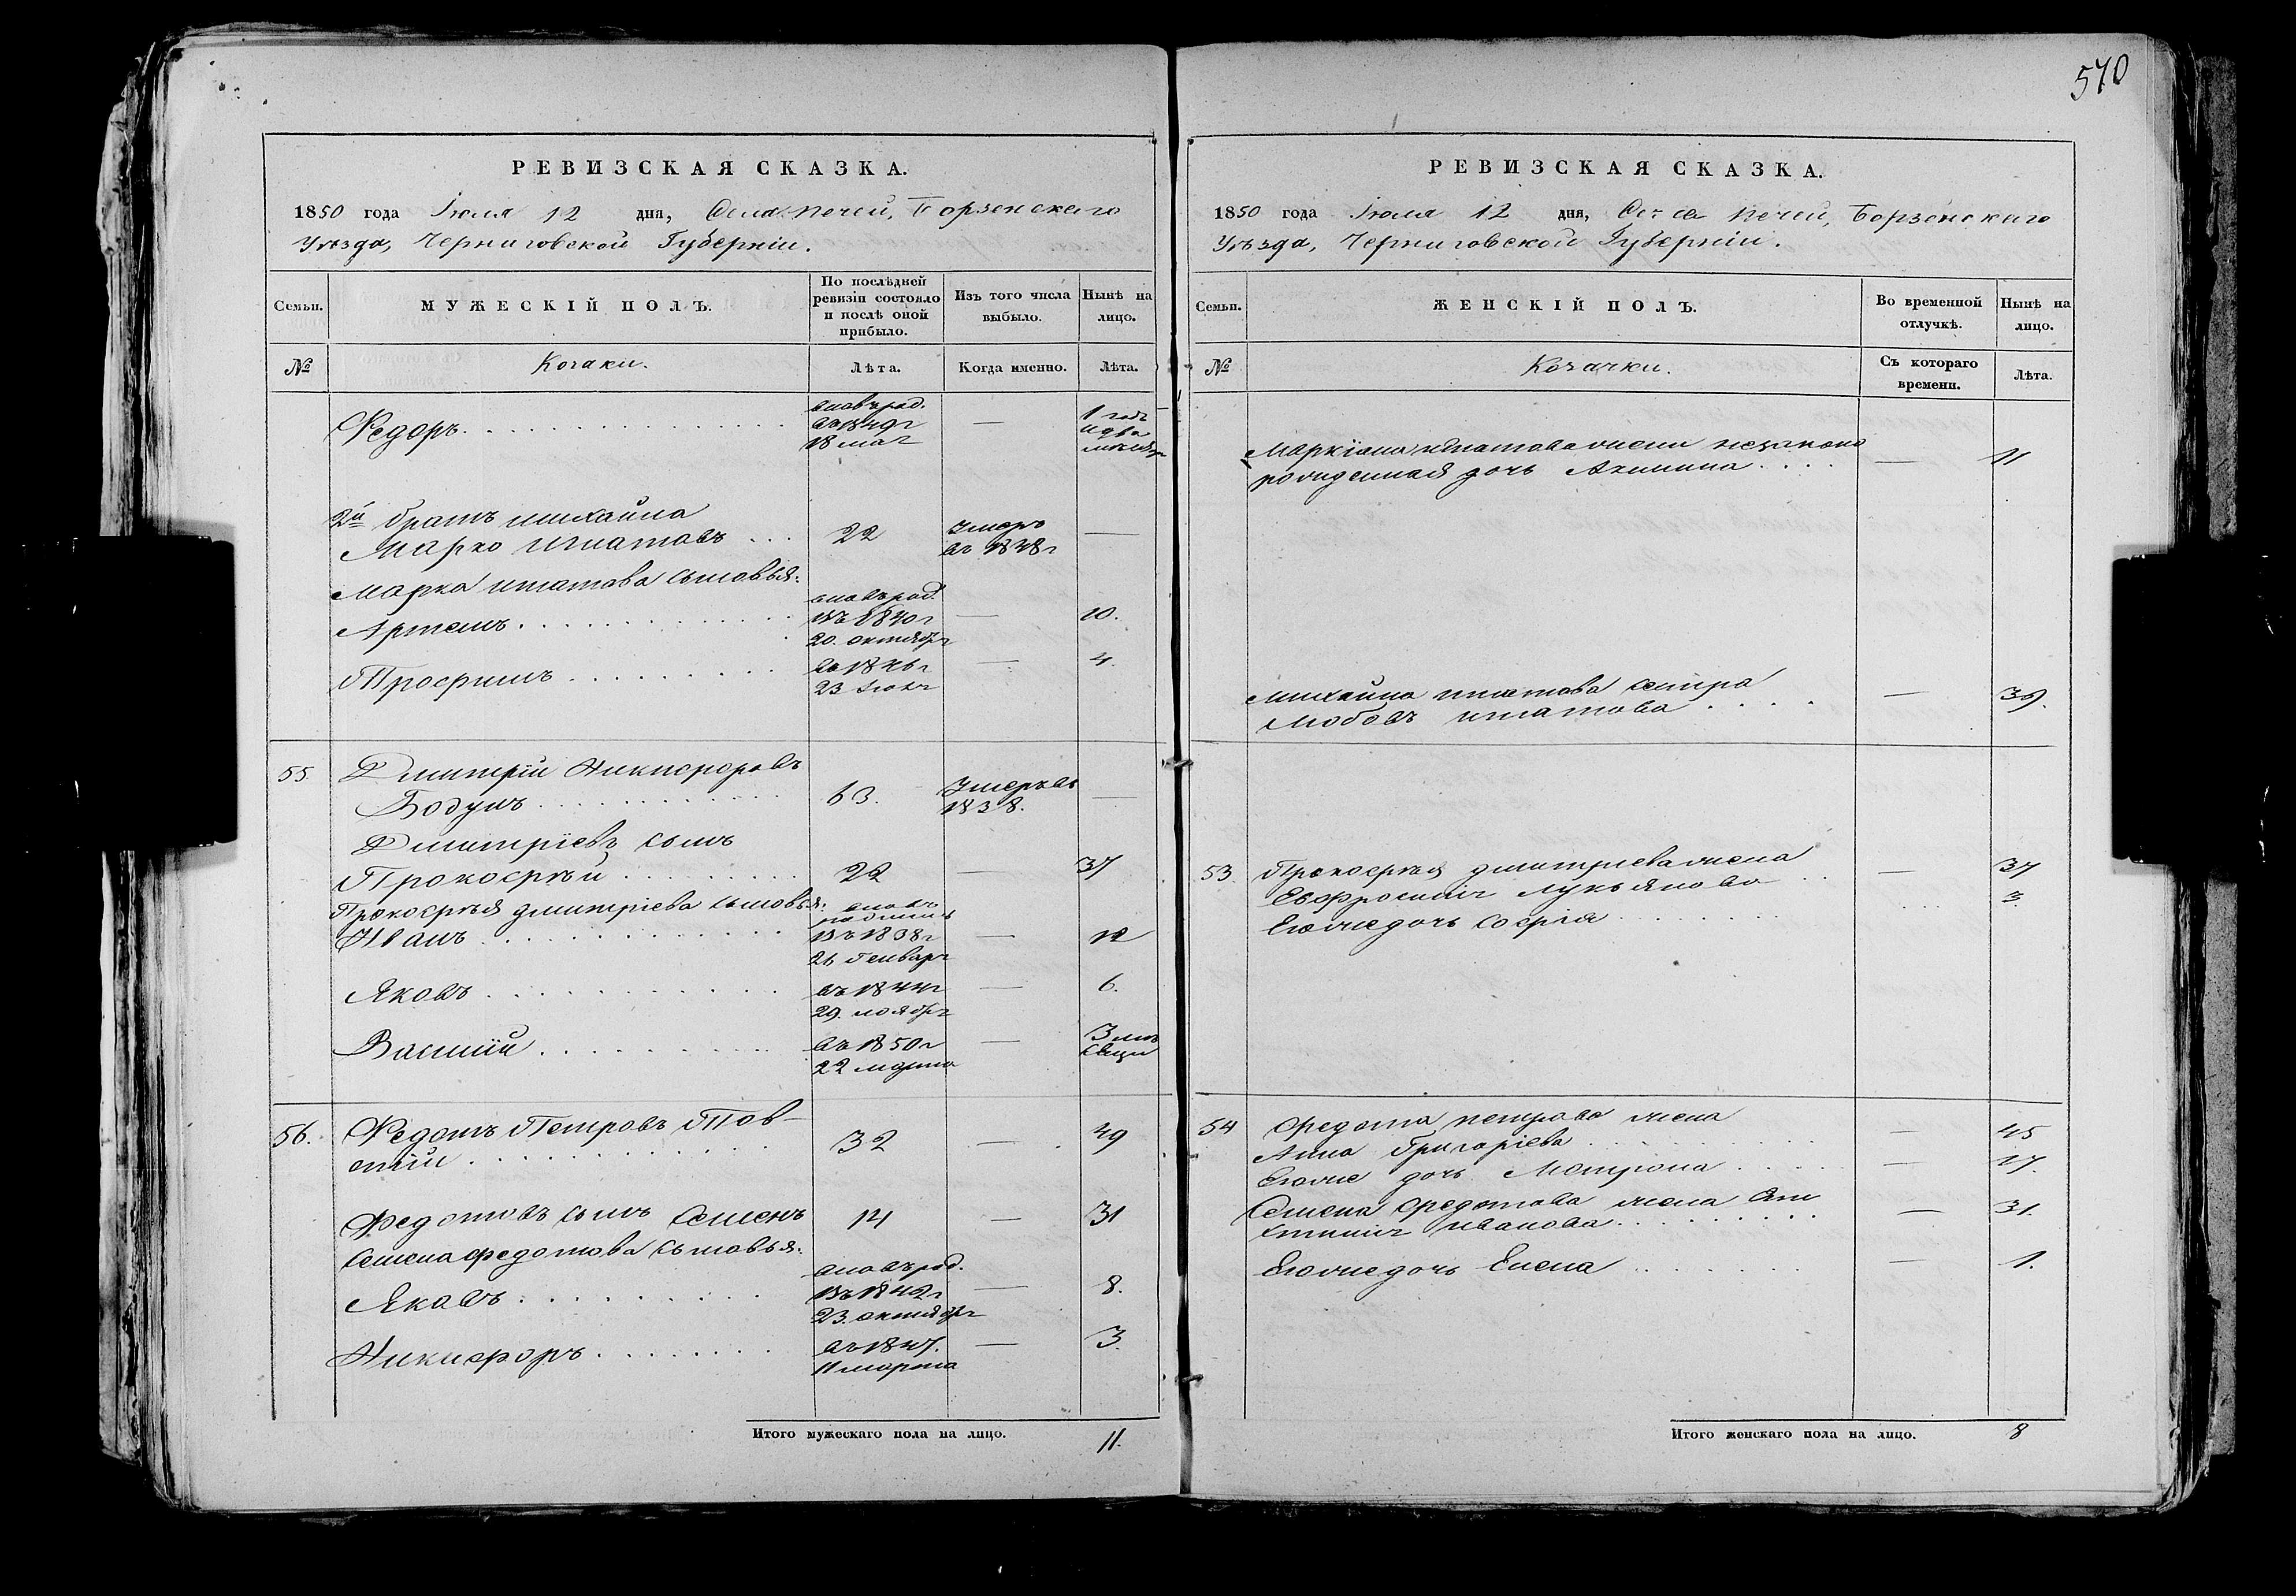 570
РЕВИЗСКАЯ СКАЗКА.
1850 года Іюля 12 дня, Села Печей, Борзенскаго
Уѣзда, Черниговской Губерніи.
Семьи.
МУЖЕСКІЙ ПОЛЪ.
По послѣдней
ревизіи состояло
и послѣ оной
прибыло.
Изъ того числа
выбыло.
Нынѣ на
лицо.
№
Козаки.
Лѣта.
Когда именно.
Лѣта.
Федоръ
вновь род.
въ 1849 г
18 мая
—
1 годъ
и два
мѣсяц
2й братъ Михайла
Марко Игнатовъ
22
Умеръ
въ 1848 г
—
Марка Игнатова сыновья:
Артемъ
вновь род.
въ 1840 г
20. октября
—
10.
Трофимъ
въ 1846 г
23
—
4.
55.
Дмитрій Никифоровъ
Бодунъ
63.
Умеръ въ
1838.
—
Дмитріевъ сынъ
Прокофѣй
22
—
37
Прокофѣя Дмитріева сыновья:
Иванъ
вновь
въ 1838 г
26 Генваря
—
12
Яковъ
въ 1844 г
29. ноября
—
6.
Василій
въ 1850 г
22 марта
—
3 мѣ
сяци
56.
Федотъ Петровъ Тов-
стій
32
—
49
Федотовъ сынъ Семенъ
14
—
31
Семена Федотова сыновья:
Яковъ
вновь род.
въ 1842 г
23. октября
—
8.
Никифоръ
въ 1847.
11 марта
—
3.
Итого мужескаго пола на лицо.
11.
РЕВИЗСКАЯ СКАЗКА.
1850 года Іюля 12 дня, Села Печей, Борзенскаго
Уѣзда, Черниговской Губерніи.
Семьи.
ЖЕНСКІЙ ПОЛЪ.
Во временной
отлучкѣ.
Нынѣ на
лицо.
№
Козачки.
Съ котораго
времени.
Лѣта.
Игнатова незаконо
рожденная дочь Акилина
—
11
Михайла Игнатова сестра
Любовъ Игнатова
—
39.
53.
Прокофѣя Дмитріева жена
Евфросинія Лукьянова
—
37
Ею же дочь Софія
3.
54
Федота Петрова жена
Анна Григоріева
—
45
Ею же дочь Мотрона
—
17.
Семена Федотова жена
Иванова
—
31.
Ею же дочь Елена
—
1.
Итого женскаго пола на лицо.
8